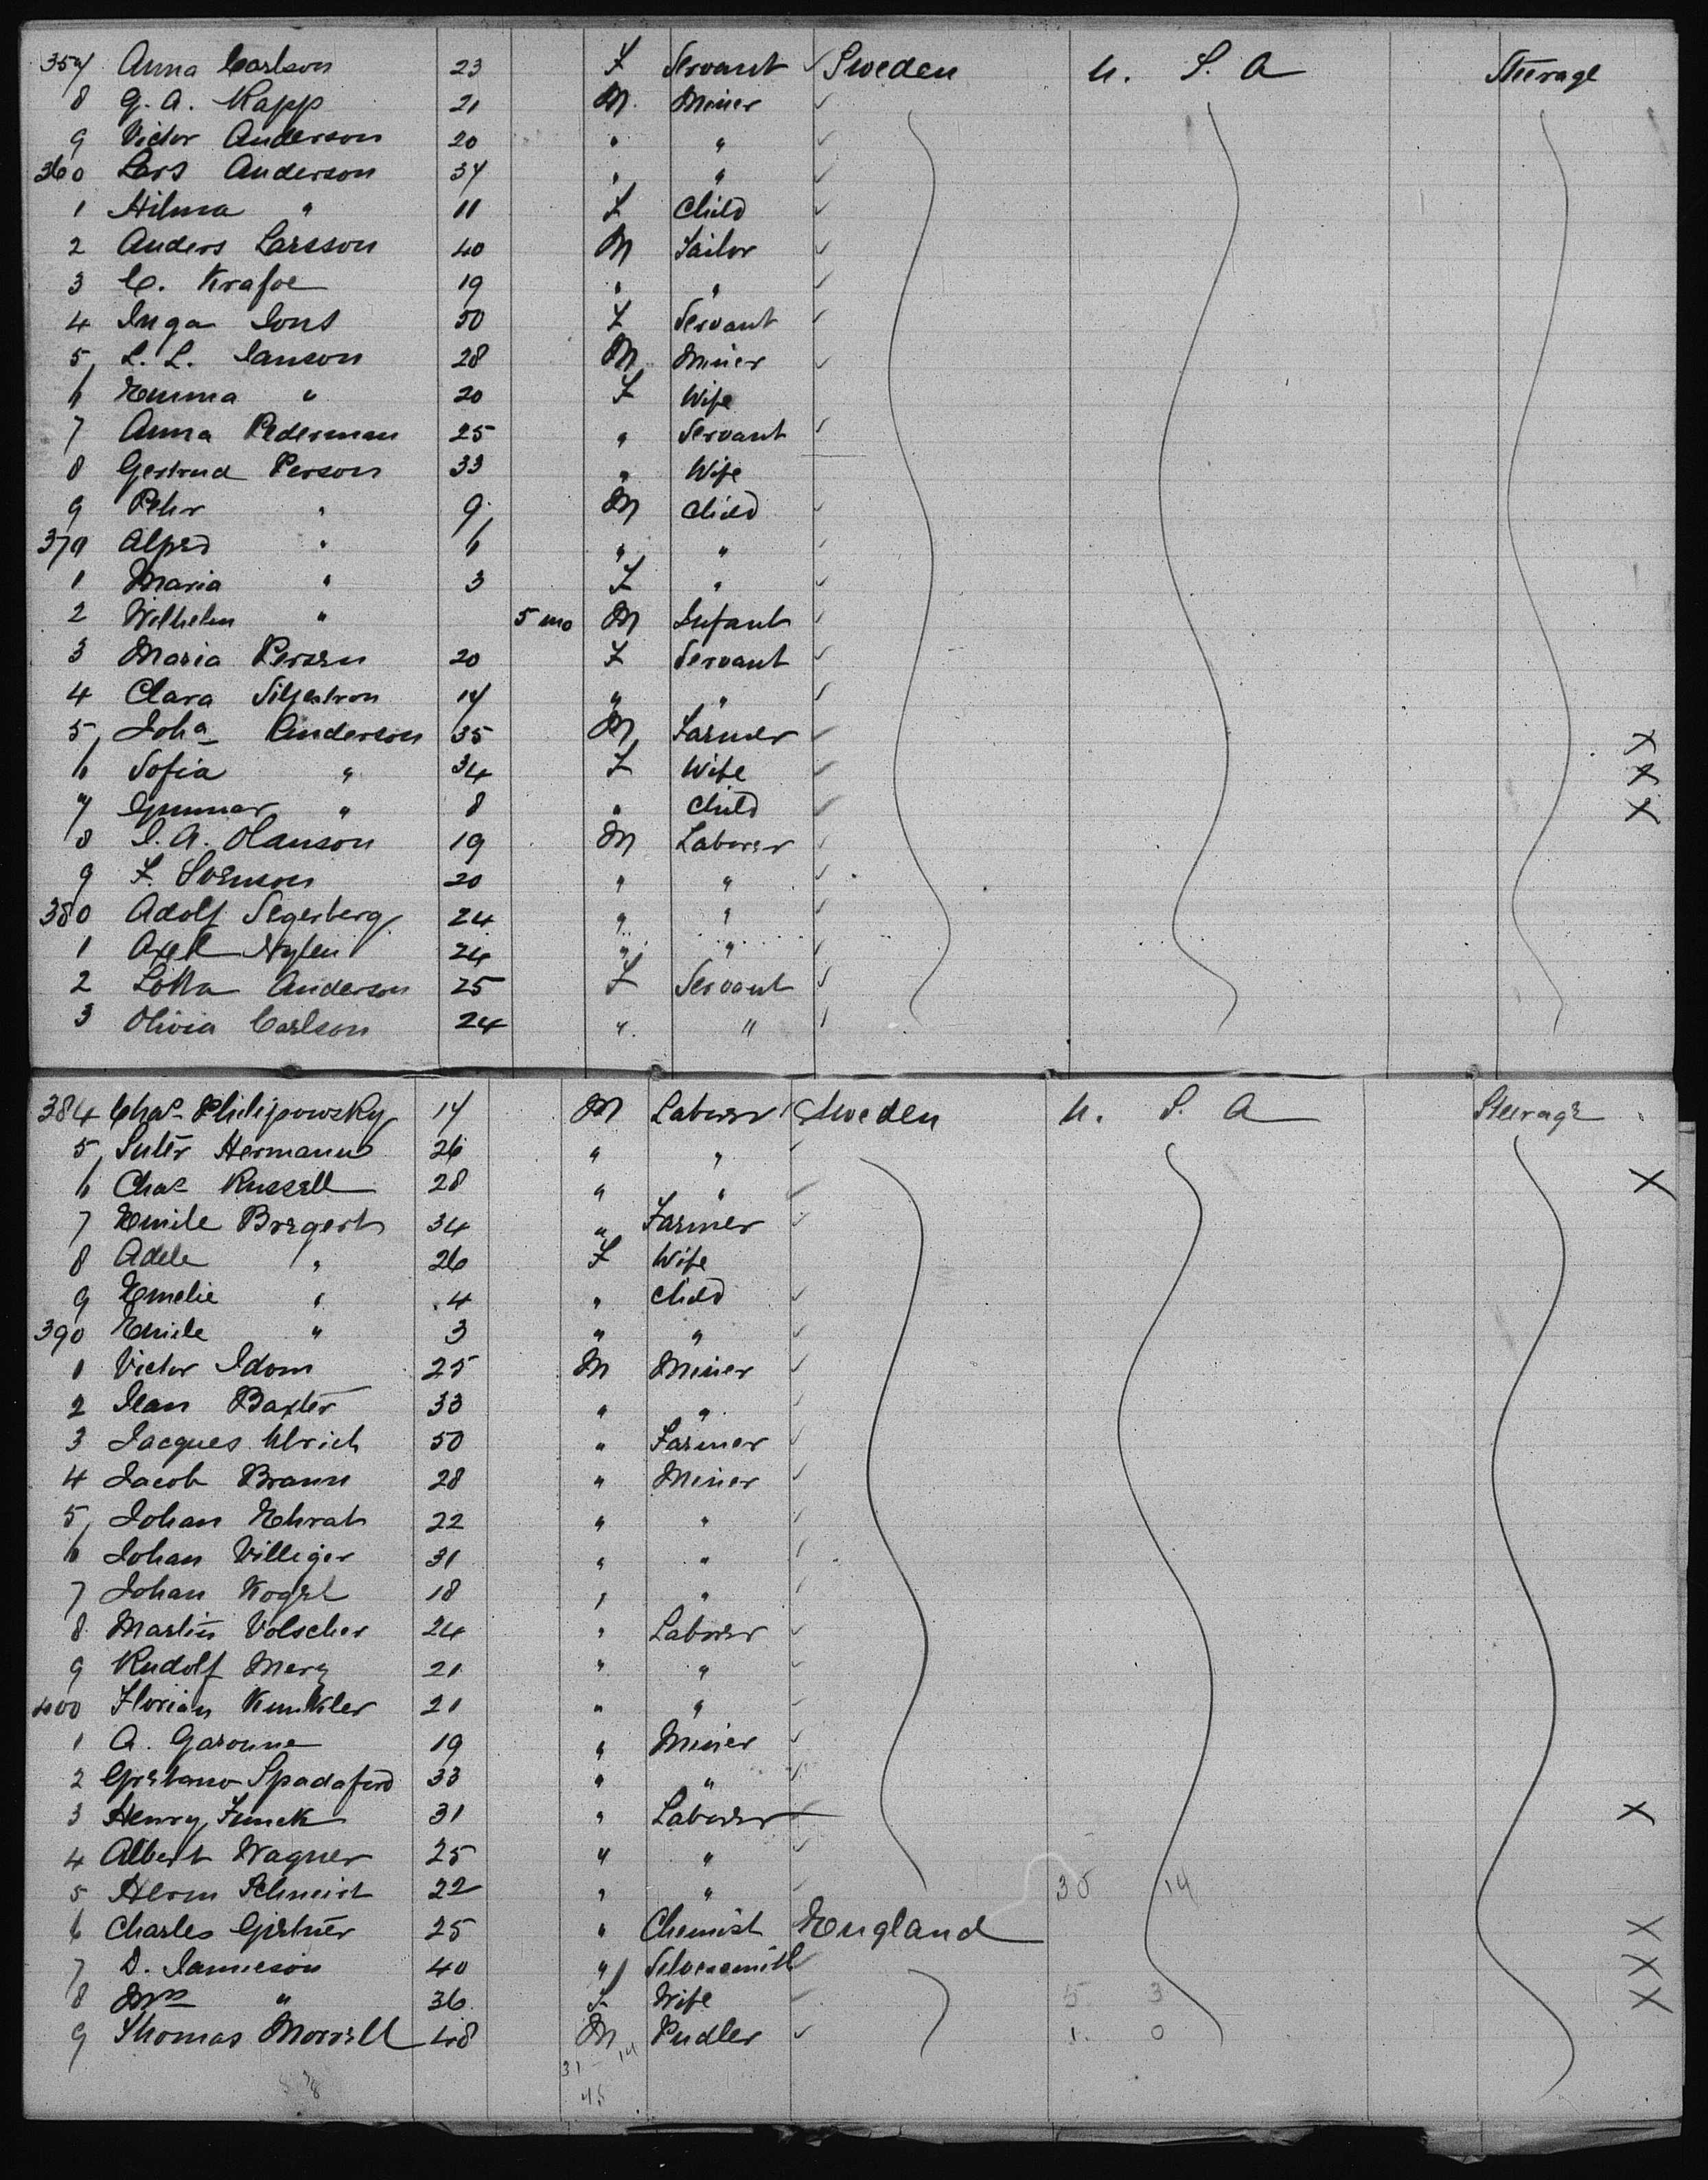 357 Anna Carlson 23 F Servant ✓ Sweden U. S. A Steerage
8 G. A. Kapp 21 M. Miner ✓
9 Victor Anderson 20 " " ✓
360 Lars Anderson 34 " " ✓
1 Hilma " 11 F Child ✓
2 Anders Larsson 40 M Tailor ✓
3 C. Krafoe 19 " " ✓
4 Inga Jons 50 F Servant ✓
5 L. L. Janson 28 M Miner ✓
6 Emma " 20 F Wife
7 Anna Pederman 25 " Servant ✓
8 Gertrud Person 33 " Wife
9 Pehr " 9 M Child ✓
370 Alfred " 6 " " ✓
1 Maria " 3 F " ✓
2 Wilhelm " 5 mo M Infant ✓
3 Maria Persen 20 F Servant ✓
4 Clara 17 " " ✓
5 Joha Anderson 35 M Farmer ✓ X
6 Sofia " 34 F Wife ✓ X
7 Gunnar " 8 " Child ✓ X
8 I. A. Olanson 19 M Laborer ✓
9 F. Svenson 20 " " ✓
380 Adolf Segerberg 24 " " ✓
1 Axel Nylen 24 " " ✓
2 Lotta Anderson 25 F Servant ✓
3 Olivia Carlson 24 " " ✓
384 Chas Philipowsky 17 M Laborer ✓ Sweden U. S. A Steerage
5 Suter Hermann 26 " " ✓
6 Chas Russell 28 " " ✓ X
7 Emile Bregert 34 " Farmer ✓
8 Adele " 26 F Wife
9 Emelie " 4 " Child ✓
390 Emile " 3 " " ✓
1 Victor Idom 25 M Miner ✓
2 Jean Baxter 33 " " ✓
3 Jacques Ulrich 50 " Farmer ✓
4 Jacob Braun 28 " Miner ✓
5 Johan Ehrat 22 " " ✓
6 Johan Villiger 31 " " ✓
7 Johan Kogel 18 " " ✓
8 Martin Volscher 24 " Laborer ✓
9 Rudolf Merz 21 " " ✓
400 Florian Kunkler 21 " " ✓
1 A. Garonne 19 " Miner ✓
2 Spadaford 33 " " ✓
3 Henry Funck 31 " Laborer ✓ X
4 Albert Wagner 25 " " ✓
5 Herm Schmidt 22 " " ✓ 30 14
6 Charles Girtner 25 " Chemist England X
7 D. Jamieson 40 " Silversmith ✓ X
8 Mrs " 36 F Wife ✓ 5 3 X
9 Thomas Morrell 48 M Pudler ✓ 1. 0
31 - 14
45